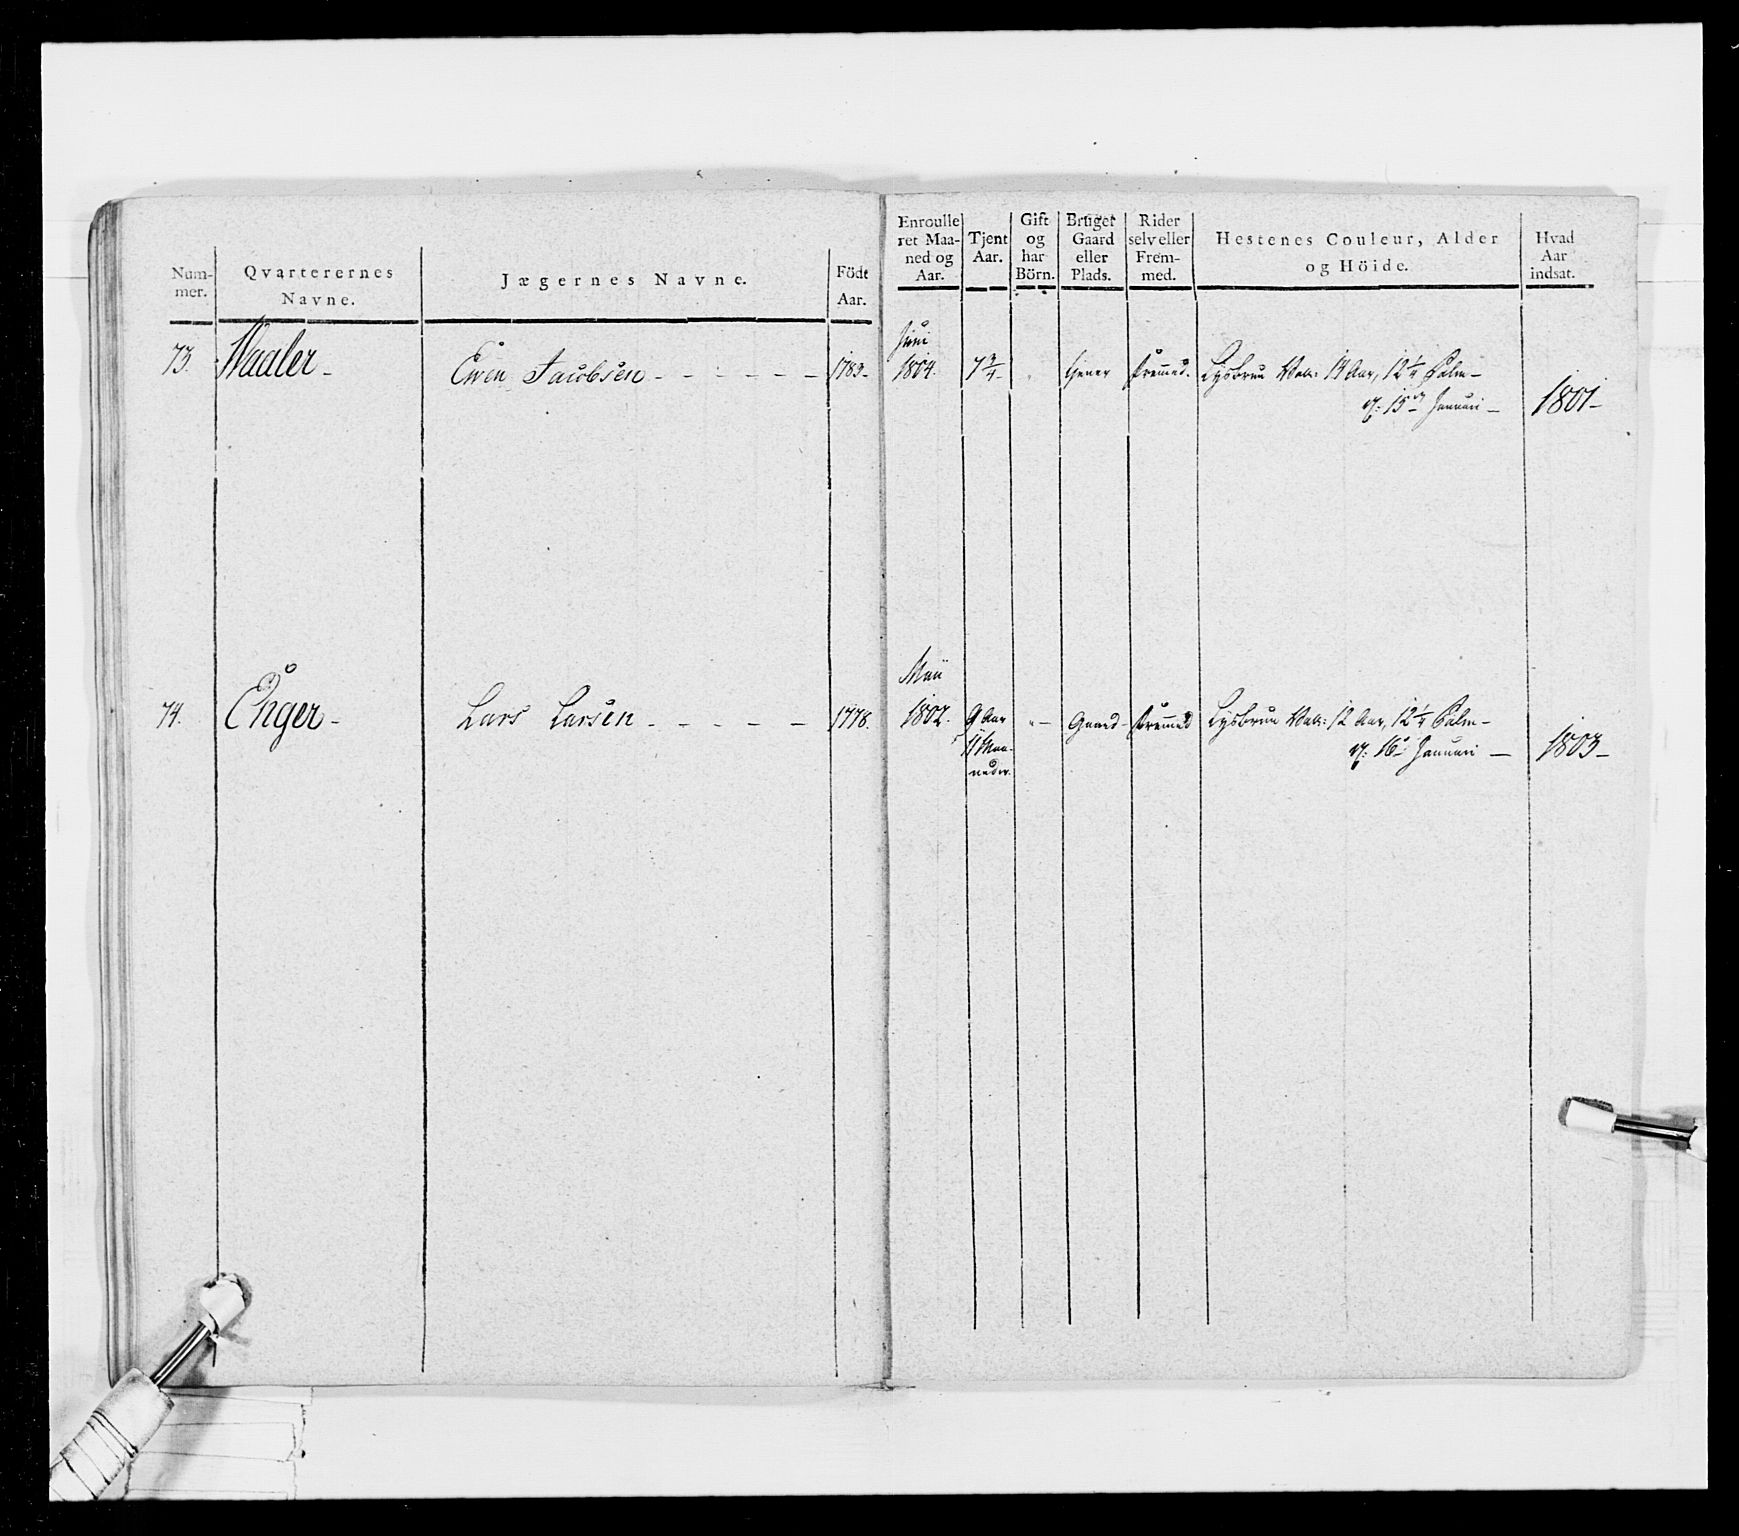 Num-
mer.
Qvarterernes
Navne.
Jægernes Navne.
Födt
Aar.
Enroulle
ret Maa-
ned og
Aar.
Tjent
Aar.
Gift
og
har
Börn.
Bruget
Gaard
eller
Plads.
Rider
selv eller
Frem-
med.
Hestenes Couleur, Alder
og Höide.
Hvad
Aar
indsat.
Juni
73. Waaler - Ewen Jacobsen - - - - - - 1783 - 1804. 7 3/4 - tjener fremed. Lysbrun Val: 14 Aar, 12 1/4 Palm -
15 Januari - 1801 -
Maii
74. Enger - Lars Larsen - - - - - 1778. 1802. 9 Aar " - Gaard - fremed Lysbrun Val: 12 Aar, 12 1/4 Palm -
11 Maa-
neder.
16 Januari - 1803 -